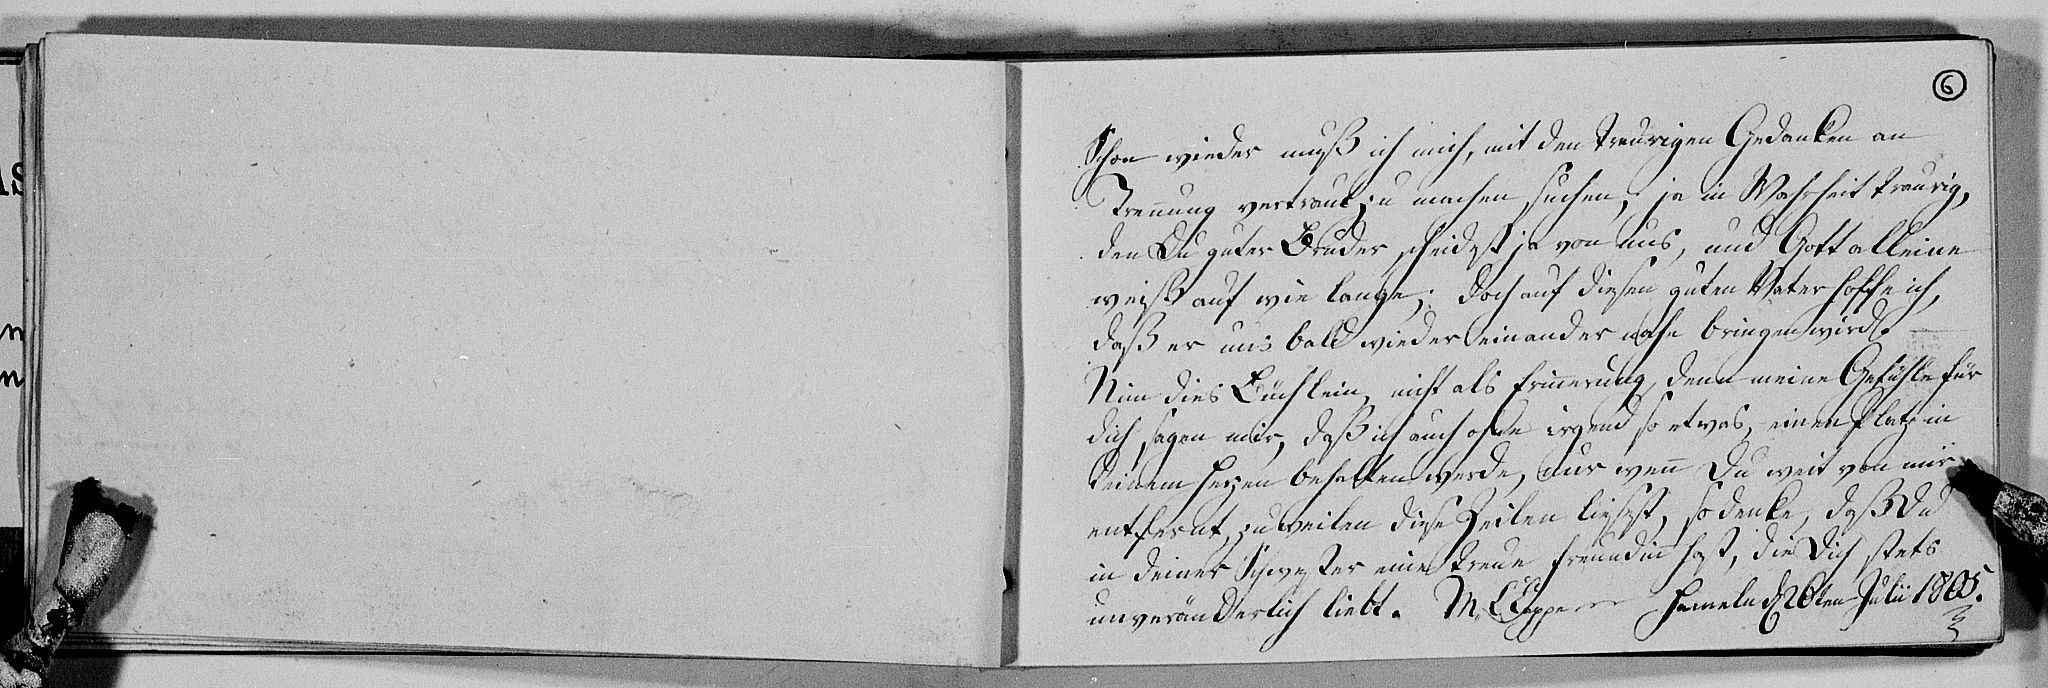 6
Schon wieder muß ich mich, mit den traurigen Gedanken an
Trenung vertraut zu machen suchen, ja in Wahrheit traurig,
den Du guter Bruder scheidest ja von uns, und Gott alleine
weißt auf wie lange; doch auf diesen guten Vater hoffe ich,
daß er uns bald wieder einander nahe bringen wird.
Nim dies Büchlein, nicht als Erinerung, denn meine Gefühle für
dich, sagen mir, daß ich auch ohne irgend so etwas, einen Platz in
deinem Herzen behalten werde, nur wen Du weit von mir
entfernt, zuweilen diese Zeilen liesest, so denke, daß Du
in deiner Schwester eine treue Freundin hast, die Dich stets
unveränderlich liebt. Hameln d 26ten Julii 1805.